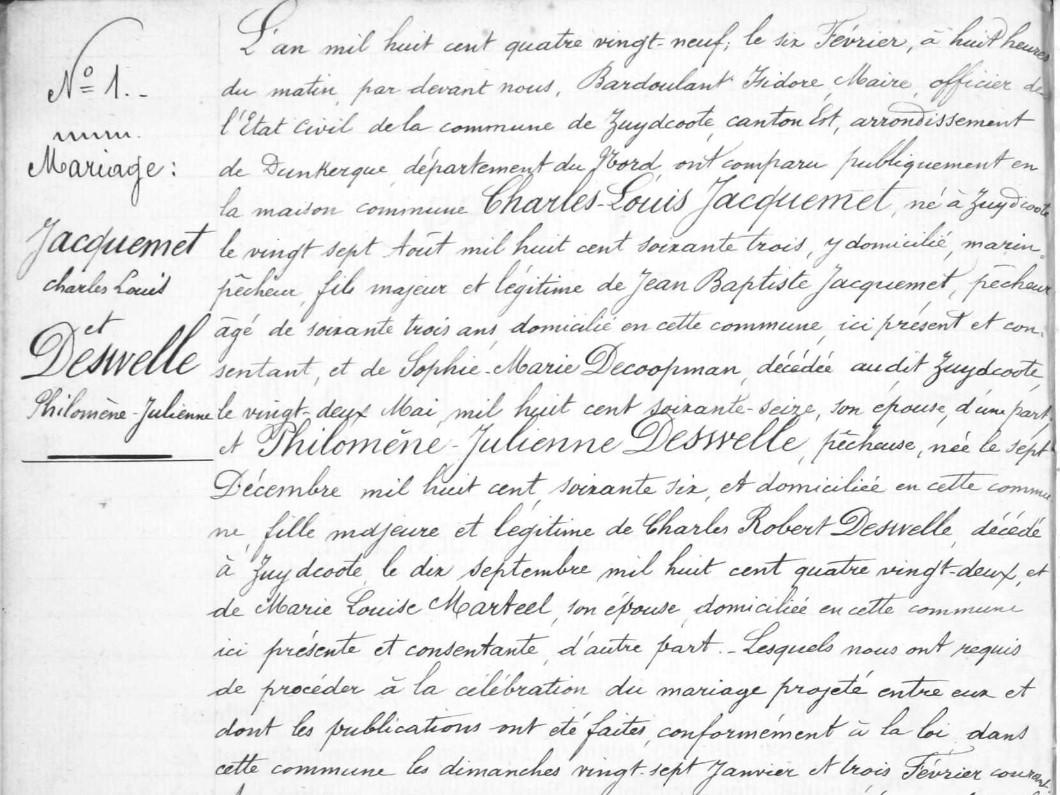 N° 1.
Mariage:
Jacquemet
charles Louis
et
Deswelle
Philomène-Julienne
L'an mil huit cent quatre vingt-neuf, le six Février, à huit heures
du matin, par devant nous, Bardoulant Isidore, Maire, officier de
l'État Civil de la commune de Zuydcoote, canton Est, arrondissement
de Dunkerque, département du Nord, ont comparu publiquement en
la maison commune Charles-Louis Jacquemet, né à Zuydcoote
le vingt sept Août mil huit cent soixante trois, y domicilié, marin
pêcheur, fils majeur et légitime de Jean Baptiste Jacquemet, pêcheur
âgé de soixante trois ans, domicilié en cette commune, ici présent et con-
sentant, et de Sophie-Marie Decoopman, décédée audit Zuydcoote,
le vingt-deux Mai, mil huit cent soixante-seize, son épouse, d'une part,
et Philomène-Julienne Deswelle, pêcheuse, née le sept
Décembre mil huit cent soixante six, et domiciliée en cette commu
ne fille majeure et légitime de Charles Robert Deswelle, décédé
à Zuydcoote, le dix septembre mil huit cent quatre vingt-deux, et
de Marie Louise Marteel, son épouse, domiciliée en cette commune
ici présente et consentante, d'autre part. - Lesquels nous ont requis
de procéder à la célébration du mariage projeté entre eux et
dont les publications ont été faites, conformément à la loi, dans
cette commune les dimanches vingt-sept Janvier et trois Février courant